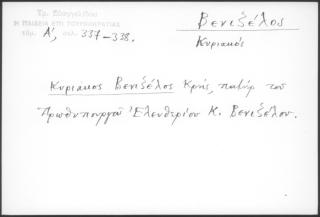 Τρ. Ευαγγελίδου
Η ΠΑΙΔΕΙΑ ΕΠΙ ΤΟΥΡΚΟΚΡΑΤΙΑΣ
τόμ. Α', σελ. 337-338.
Βενιζέλος
Κυριακός
Κυριακος Βενιζέλος Κρής, πατήρ του
Πρωθυπουργοῦ Ἐλευθερίου Κ. Βενιζέλου.